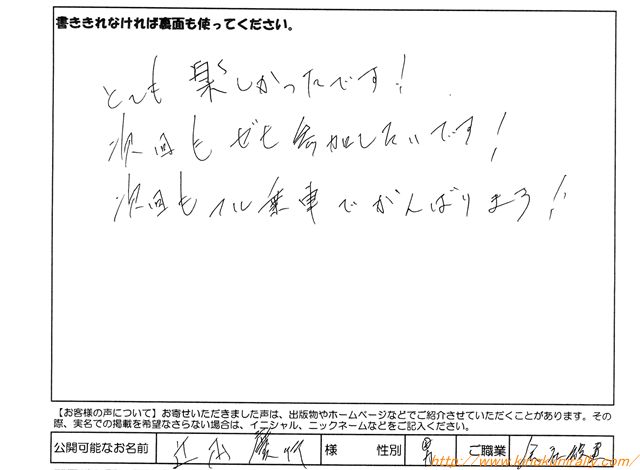 書ききれなければ裏面も使ってください。
とても楽しかったです!
次回もぜひ参加したいです!
次回もフル乗車でがんばりまう!
【お客様の声について】お寄せいただきました声は、出版物やホームページなどでご紹介させていただくことがあります。その
際、実名での掲載を希望なさらない場合は、イニシャル、ニックネームなどをご記入ください。
公開可能なお名前 様 性別 男 ご職業